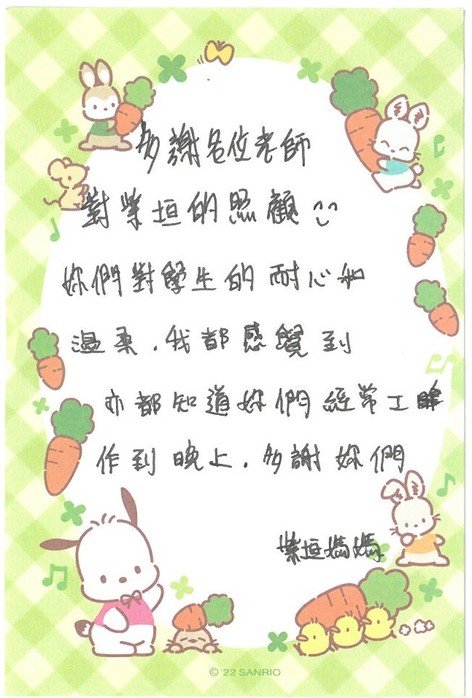 多謝各位老師
對紫垣的照顧
妳們對學生的耐心和
溫柔，我都感覺到
亦都知道妳們經常工
作到晚上，多謝妳們
紫垣媽媽
© '22 SANRIO